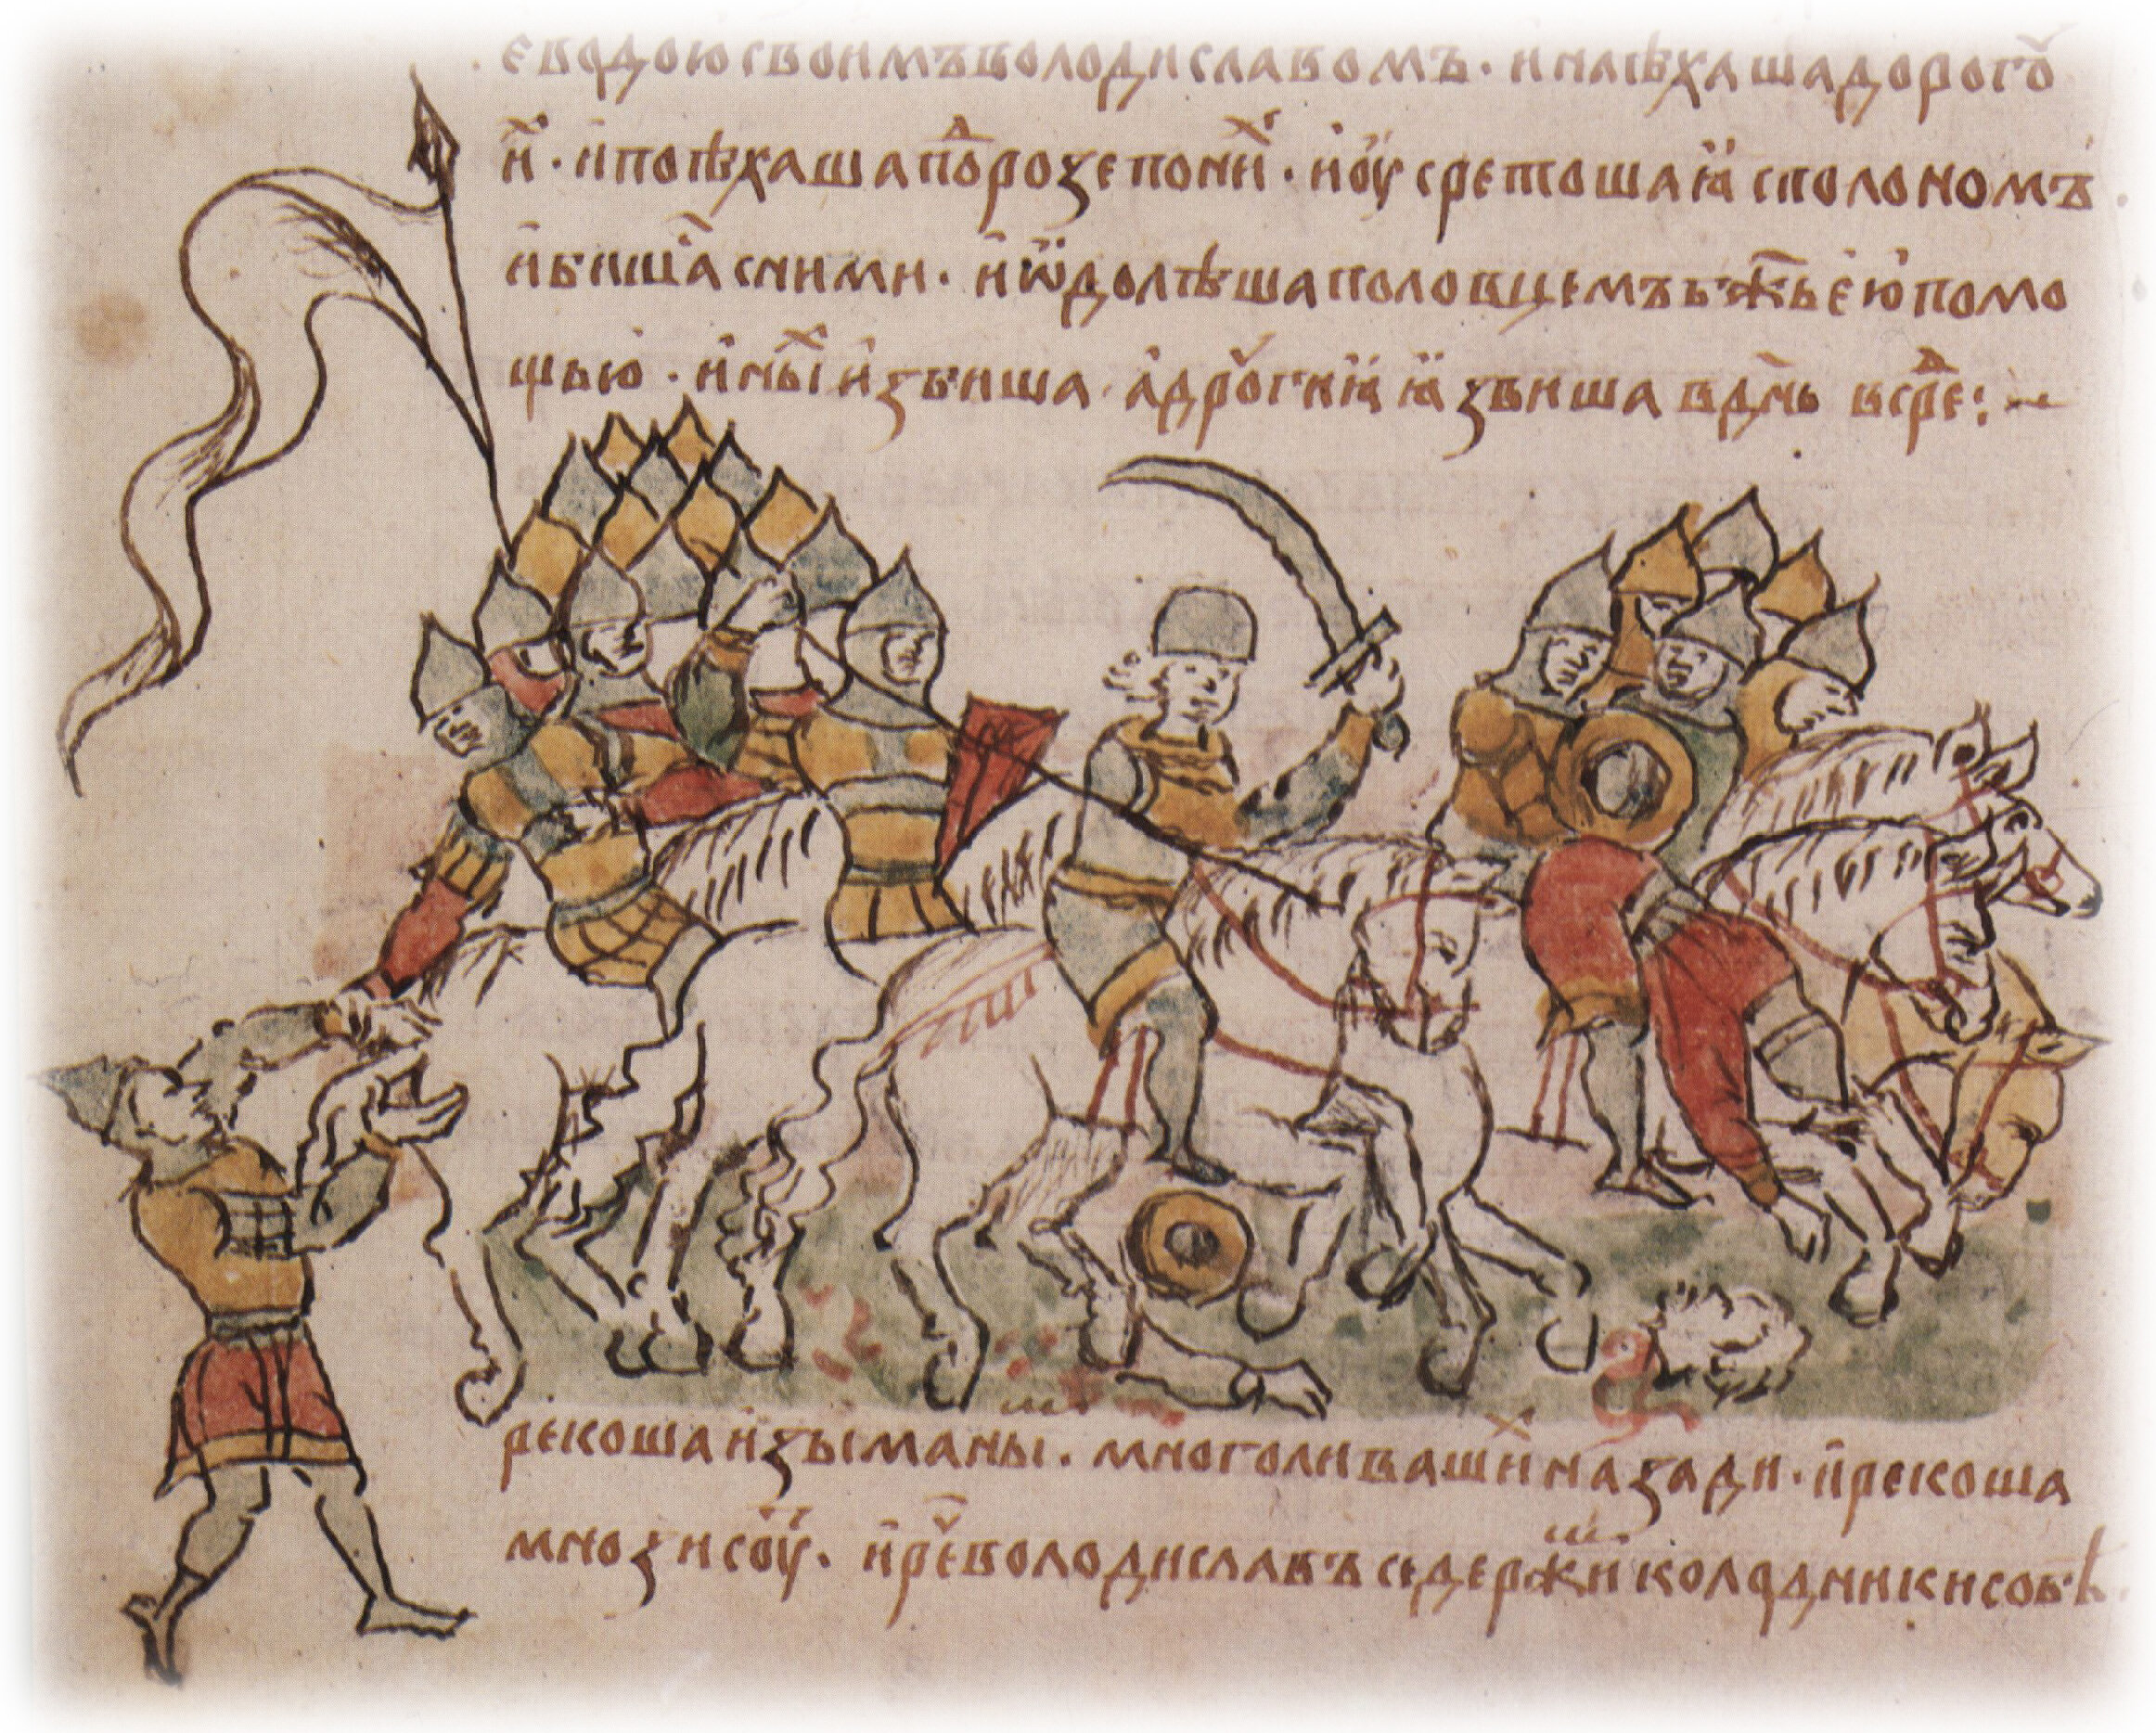 еводою своимъ володиславомъ · и наѣхаша дорогоу
иⷯ · и поѣхаша поⷣрозе по ниⷯ · и оусретоша ꙗ с полономъ ·
и бишаⷭ с ними · и ѿдолѣша половцемъ бж҃ьею помо
щью · и ныⷯ изъбиша · а дроугиꙗ ꙗзвиша в дн҃ь в среⷣ :~
рекоша изыманы · много ли вашиⷯ назади · и рекоша
мнози соуⷮ · и рⷱе володиславъ се держиⷨ колодники собѣ ·